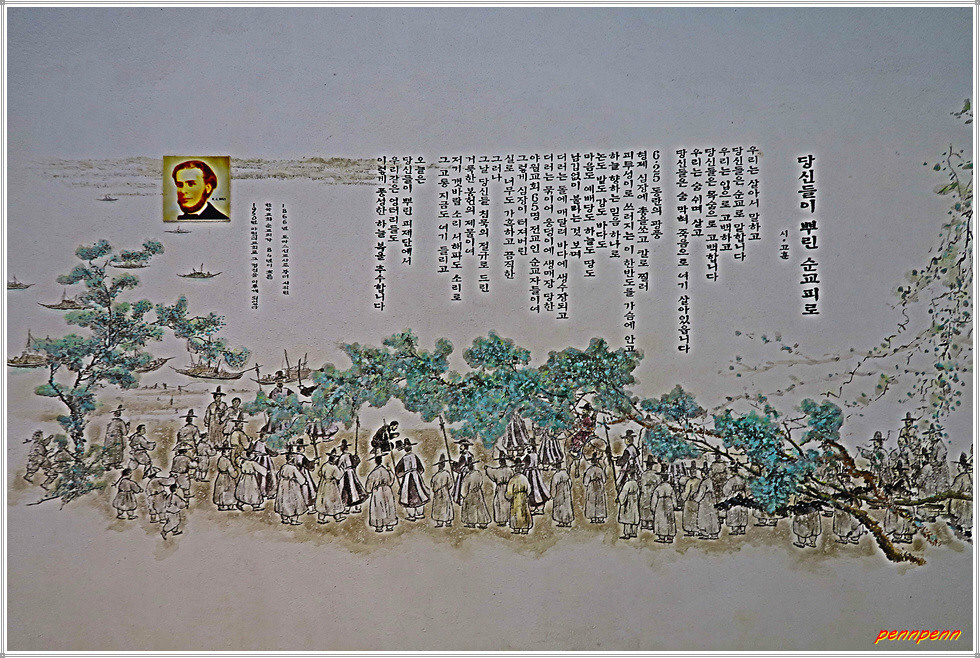 당신들이 뿌린 순교피로
시. 고훈
우리는 살아서 말하고
당신들은 순교로 말합니다
우리는 입으로 고백하고
당신들은 목숨으로 고백합니다
우리는 숨 쉬며 살고
당신들은 숨 멈춰 죽음으로 여기 살아있습니다
6.25 동란의 광풍
형제 심장에 총을쏘고 칼로 찔러
피투성이로 쓰러지는 이 한반도를 가슴에 안고
하늘 향하는 믿음 하나로
논도 밭도 갈도 바다도
마을도 예배당도 하늘도 땅도
남김없이 불타는 것 보며
더러는 돌에 매달려 바다에 생수장되고
더러는 묶이어 웅덩이에 생매장 당한
야월교회 65명 전교인 순교자들이여
그렇게 심장이 터져버린
실로 너무도 가혹하고 끔찍한
그러나
그날 당신들 침묵의 절규로 드린
거룩한 봉헌의 제물이여
저기 갯바람 소리 서해파도 소리로
그 고통 지금도 여기 들리고
오늘은
당신들이 뿌린 피제단에서
우리같은 영터리들도
이렇게 풍성한 하늘 복을 추수합니다
1866년
pennpenn